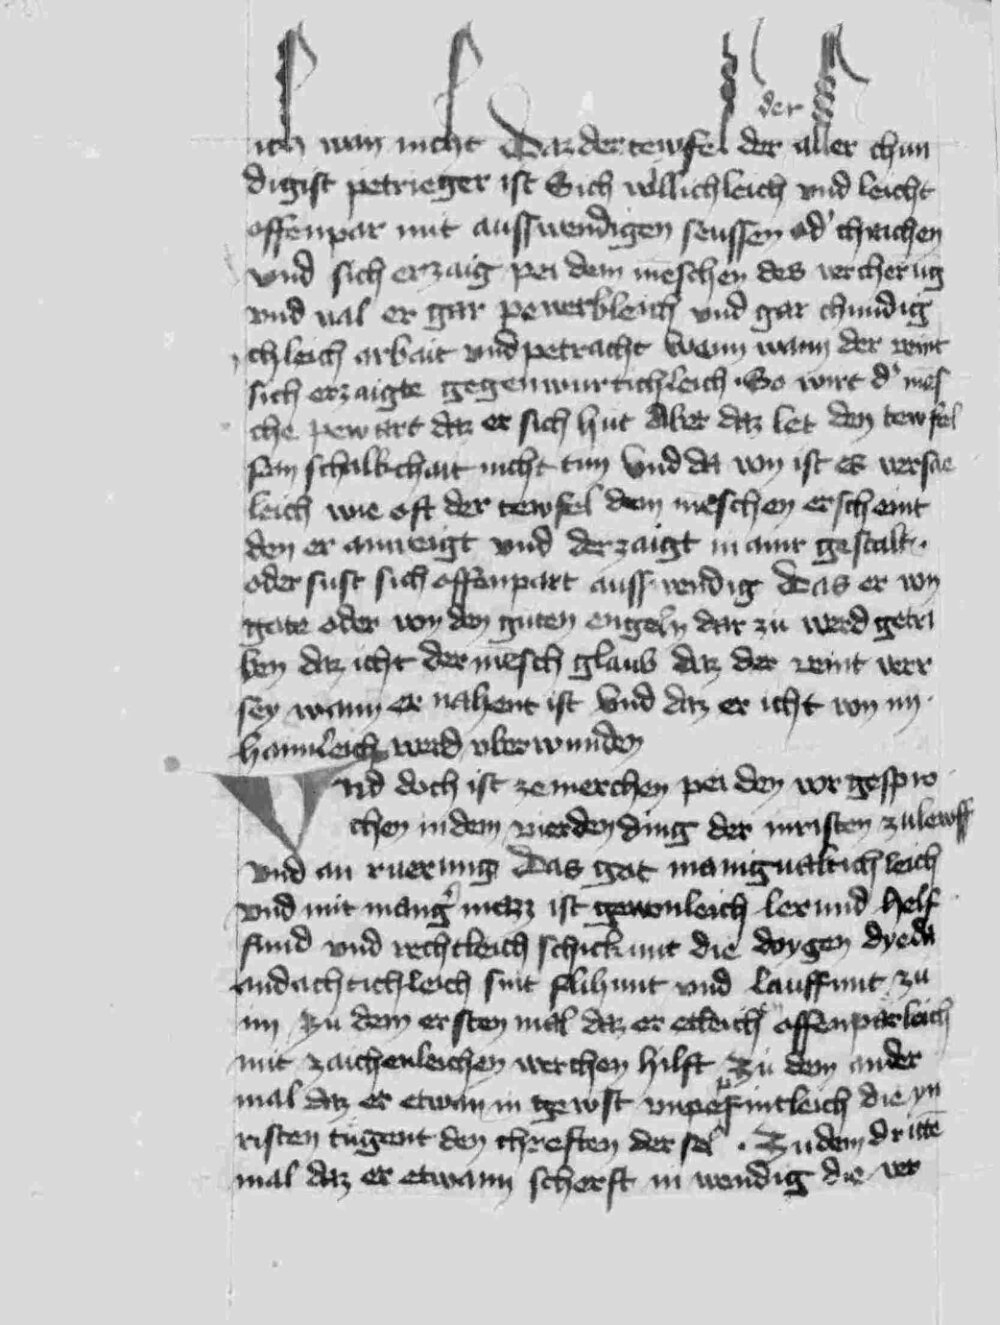 der
ich wan nicht Daz der tewfel der aller chun
digist petrieger ist Sich willichleich vnd leicht
offenpar mit ausswendigen seussen od' chrichen
vnd sich erzaig pei dem meschen des vercherug
vnd val er gar pewerbleich vnd gar chundig
chleich arbait vnd petracht Wenn wann der veint
sich erzaigte gegenwurtichleich So wirt d' mes
che pewart daz er sich hut Aber daz let den tewfel
sein schalkchait nicht tun Vnd da von ist es versae
leich wie oft der tewfel dem meschen erscheint
den er anveigt vnd derzaigt in ainr gestalt
oder sust sich offenpart ausswendig Das er von
gote oder von den guten engeln dar zu werd getri
ben daz icht der mesch glaub daz der veint verr
sey wann er nahent ist Vnd daz er icht von im
haimleich werd vberwunden
Vnd doch ist ze merchen pei den vor gespro
chen in dem vierden ding der inristen zulewff
vnd an ruerung Das got manigualtichleich
vnd mit mang' mazz ist gewonleich ler vnd helf
fund vnd rechtleich schickunt die doygen dye da
andachtichleich sint flihunt vnd lauffunt zu
im Zu dem ersten mal daz er etleich offenparleich
mit zaichenleichen werchen hilft Zu dem ander
mal daz er etwan in tgewst vnpefintleich die yn
risten tugent den chreften der sel . Zu dem dritte
mal daz er etwann scherft in wendig die ver